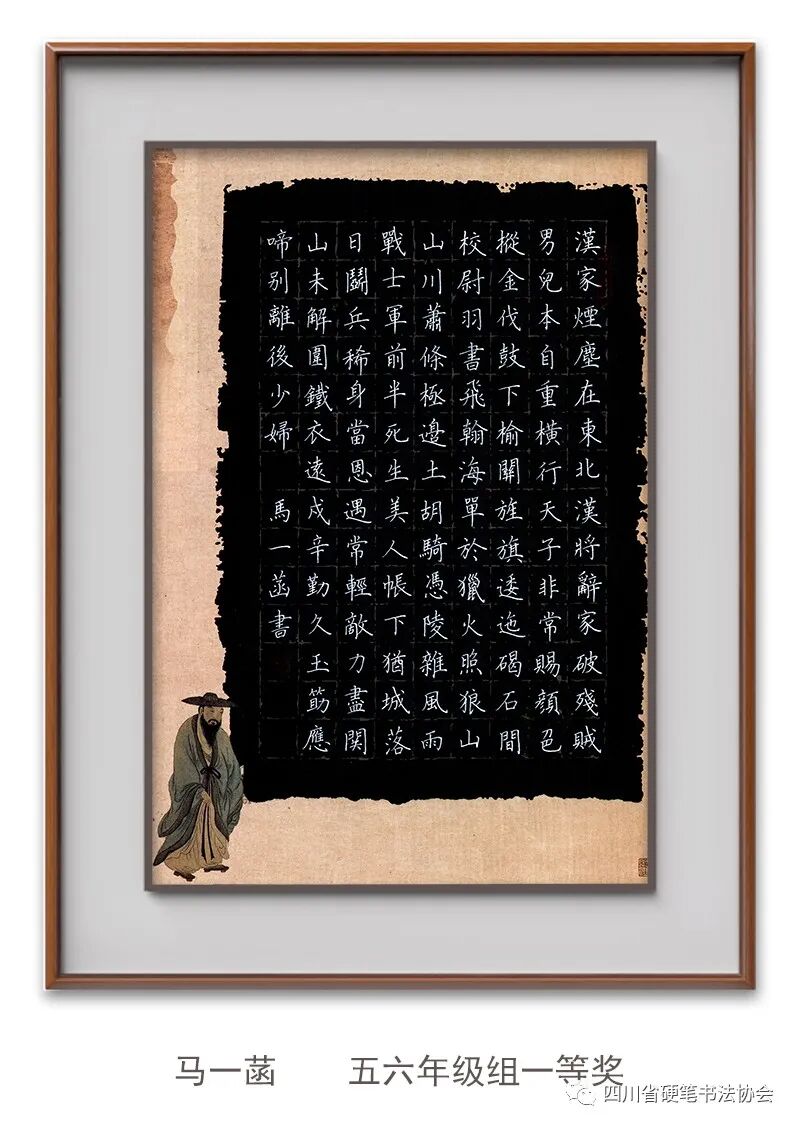 漢家煙塵在東北漢將辭家破殘賊
男兒本自重橫行天子非常賜顔色
摐金伐鼓下榆關旌旗逶迤碣石間
校尉羽書飛翰海單於獵火照狼山
山川蕭條極邊土胡騎憑陵雜風雨
戰士軍前半死生美人帳下猶城落
日鬭兵稀身當恩遇常輕敵力盡関
山未解圍鐵衣遠戍辛勤久玉筯應
啼別離後少婦 馬一菡書
马一菡 五六年级组一等奖
四川省硬笔书法协会